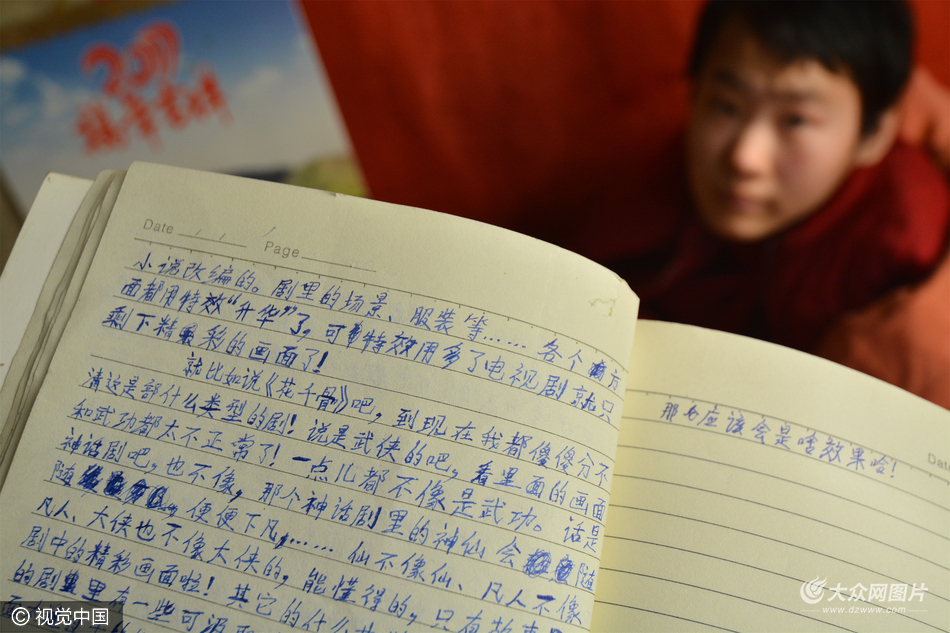 2017
福章吉祥
Date
Page
小说改编的。剧里的场景、服装等……各个方
面都用特效“升华”了，可特效用多了电视剧就只
剩下精彩的画面了！
就比如说《花千骨》吧，到现在我都傻傻分不
清这是部什么类型的剧！说是武侠的吧，看里面的画面
和武功都太不正常了！一点儿都不像是武功。话是
神话剧吧，也不像，那个神话剧里的神仙会随
随便便下凡，……仙不像仙、凡人不像
凡人、大侠也不像大侠的，能懂得的，只有
剧中的精彩画面啦！其它的什么
的剧里有一些可
那应该会是啥效果哈！
Date
© 视觉中国
大众网图片
www.dzwww.com